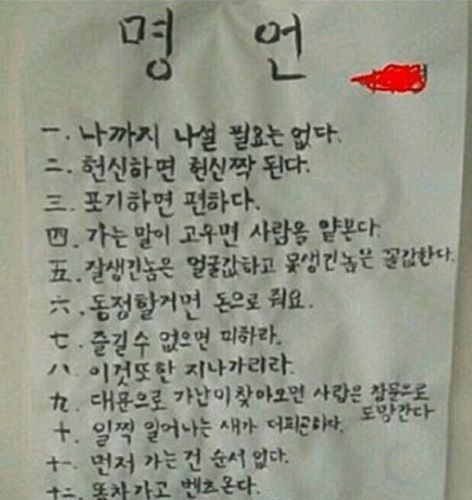 명 언
一. 나까지 나설 필요는 없다.
二. 헌신하면 헌신짝 된다.
三. 포기하면 편하다.
四. 가는 말이 고우면 사람을 얕본다.
五. 잘생긴놈은 얼굴값하고 못생긴놈은 꼴값한다.
六. 동정할거면 돈으로 줘요.
七. 즐길수 없으면 피하라.
八. 이것또한 지나가리라.
九. 대문으로 가난이찾아오면 사랑은 창문으로
도망간다
十. 일찍 일어나는 새가 더피곤하다.
十一. 먼저 가는건 순서 없다.
十二. 똥차가고 벤츠온다.